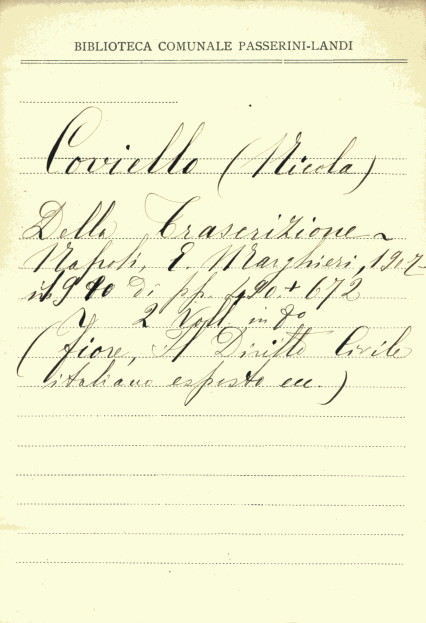 BIBLIOTECA COMUNALE PASSERINI-LANDI
Coviello (Nicola)
Della Trascrizione ~
Napoli, E. Marghieri, 1907-
1910 di pp. 490 + 672
2 Voll. in 8o
(Fiore, Il Diritto Civile
italiano esposto ecc.)